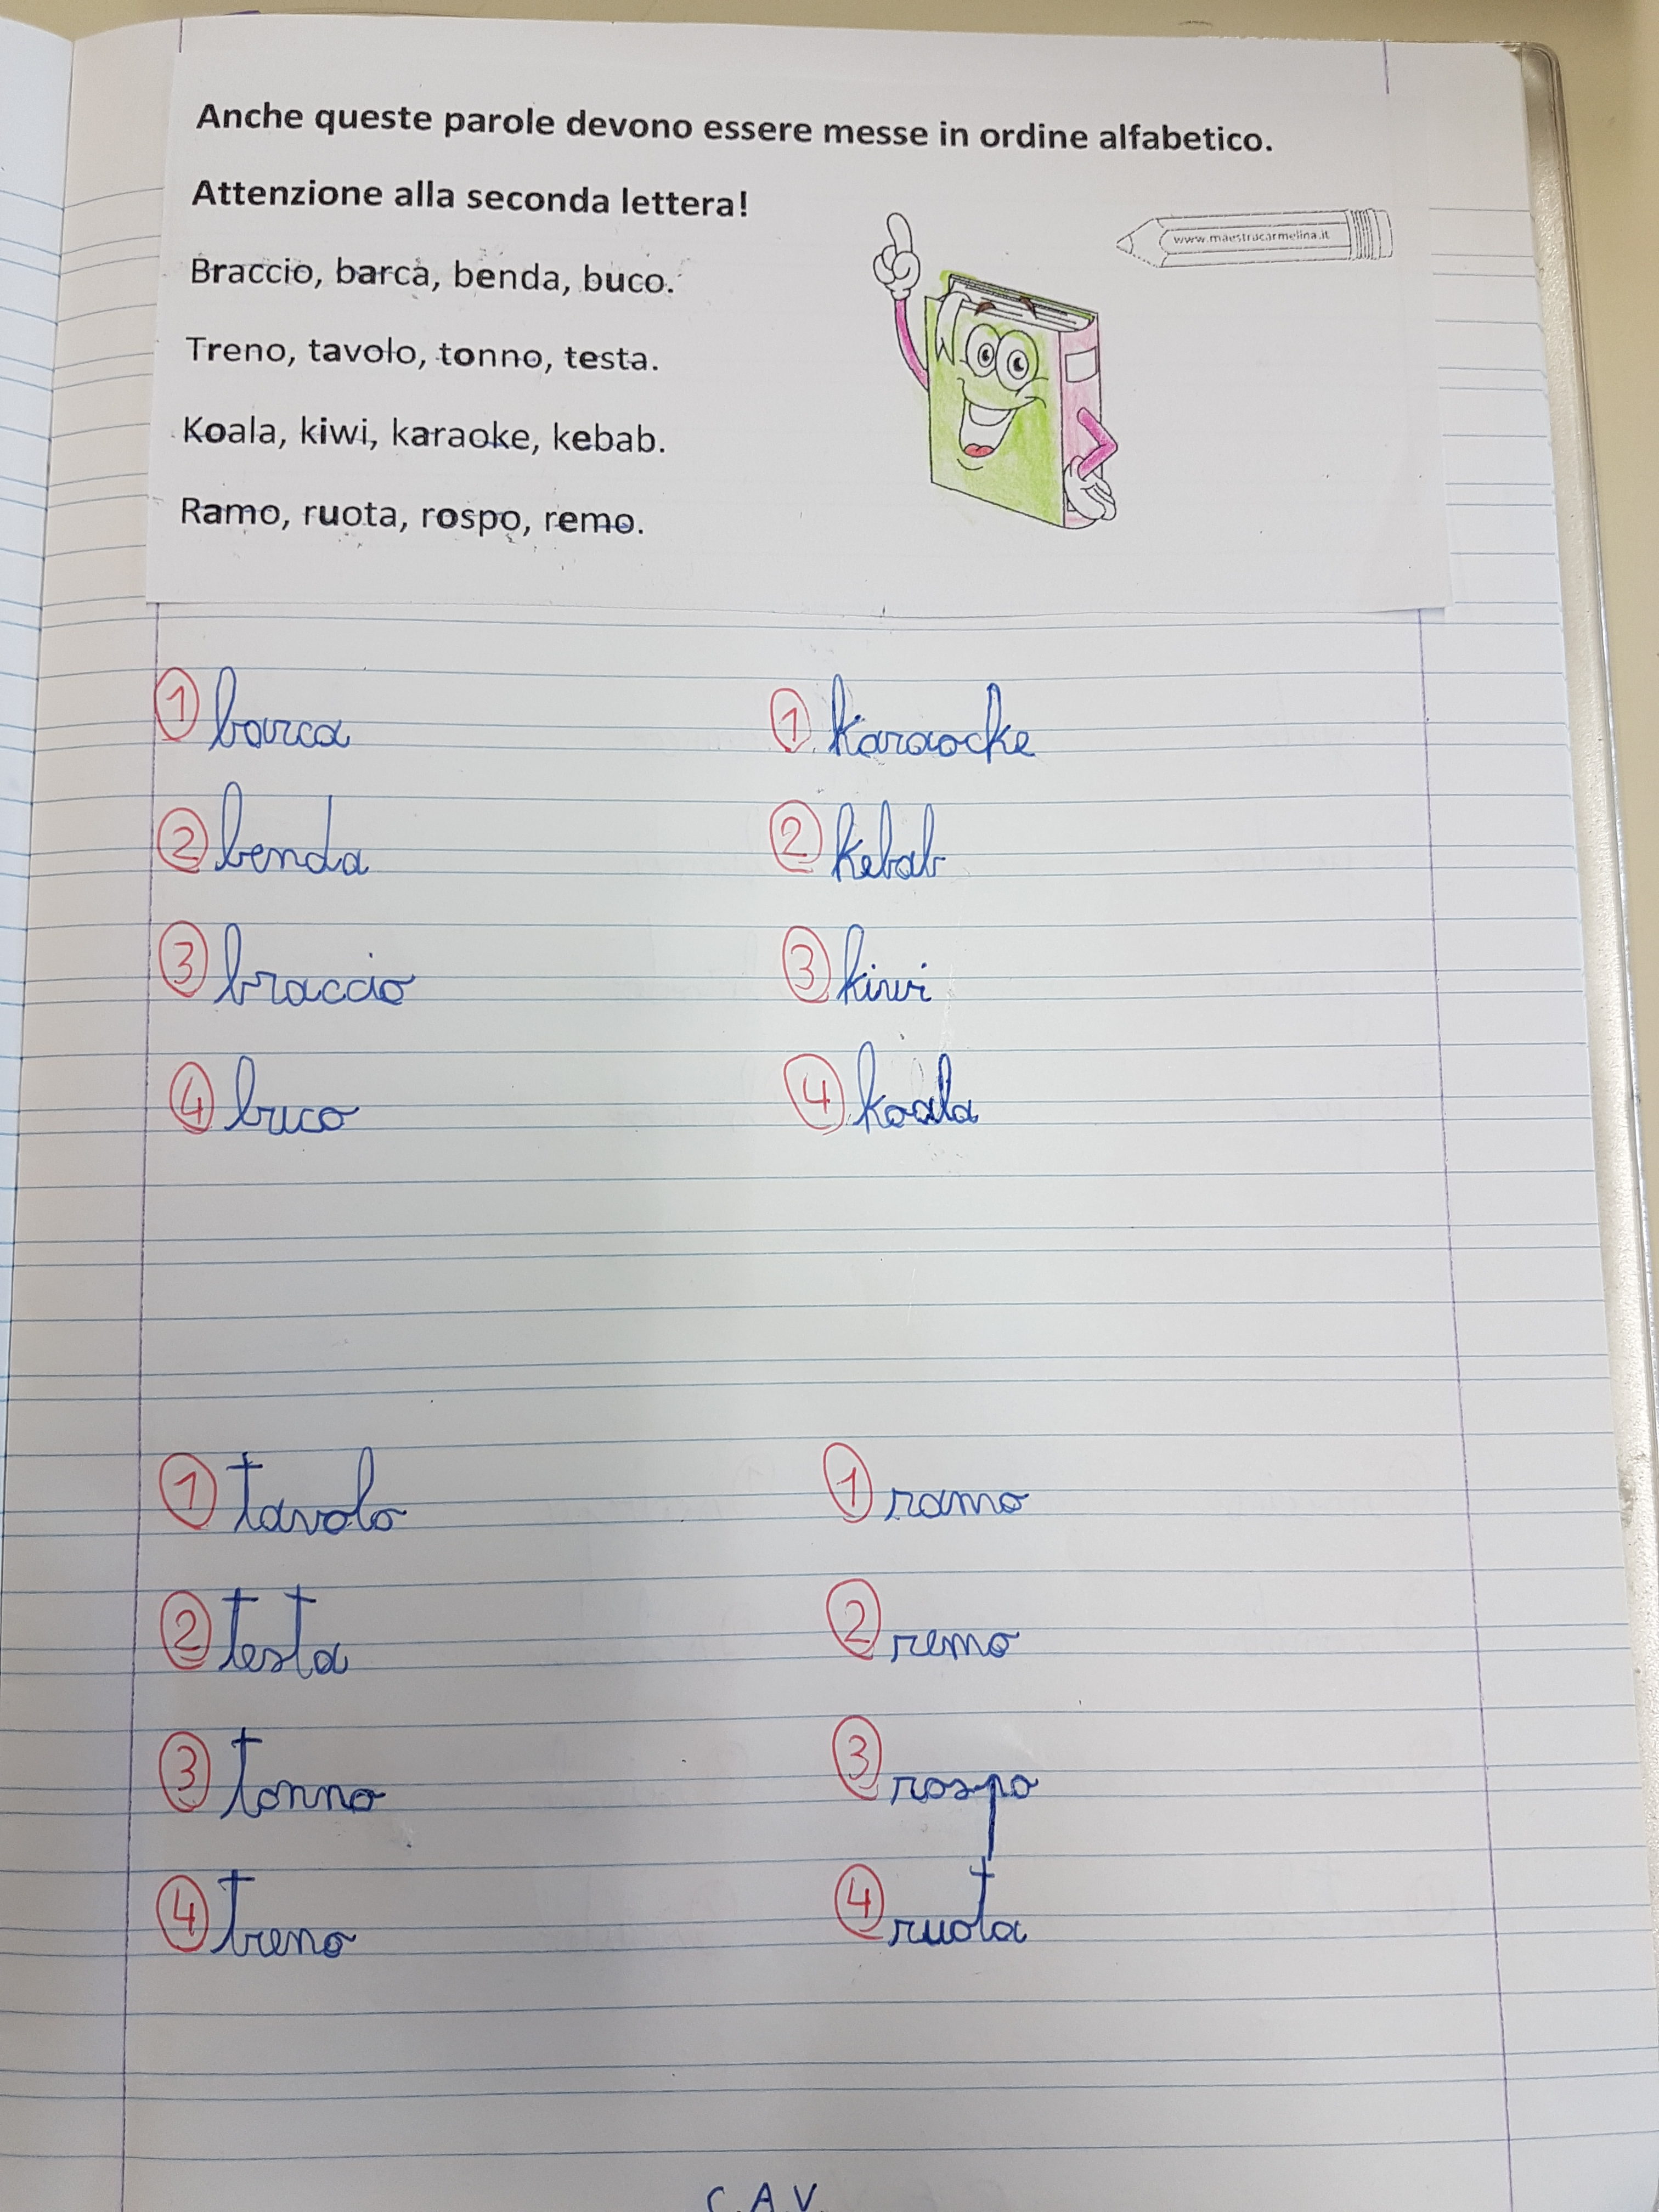 Anche queste parole devono essere messe in ordine alfabetico.
Attenzione alla seconda lettera!
www.maestracarmelina.it
Braccio, barca, benda, buco.
Treno, tavolo, tonno, testa.
Koala, kiwi, karaoke, kebab.
Ramo, ruota, rospo, remo.
1 barca
2 benda
3 braccio
4 buco
1 karaocke
2 kebab
3 kiwi
4 koala
1 tavolo
2 testa
3 tonno
4 treno
1 ramo
2 remo
3 rospo
4 ruota
C.A.V.